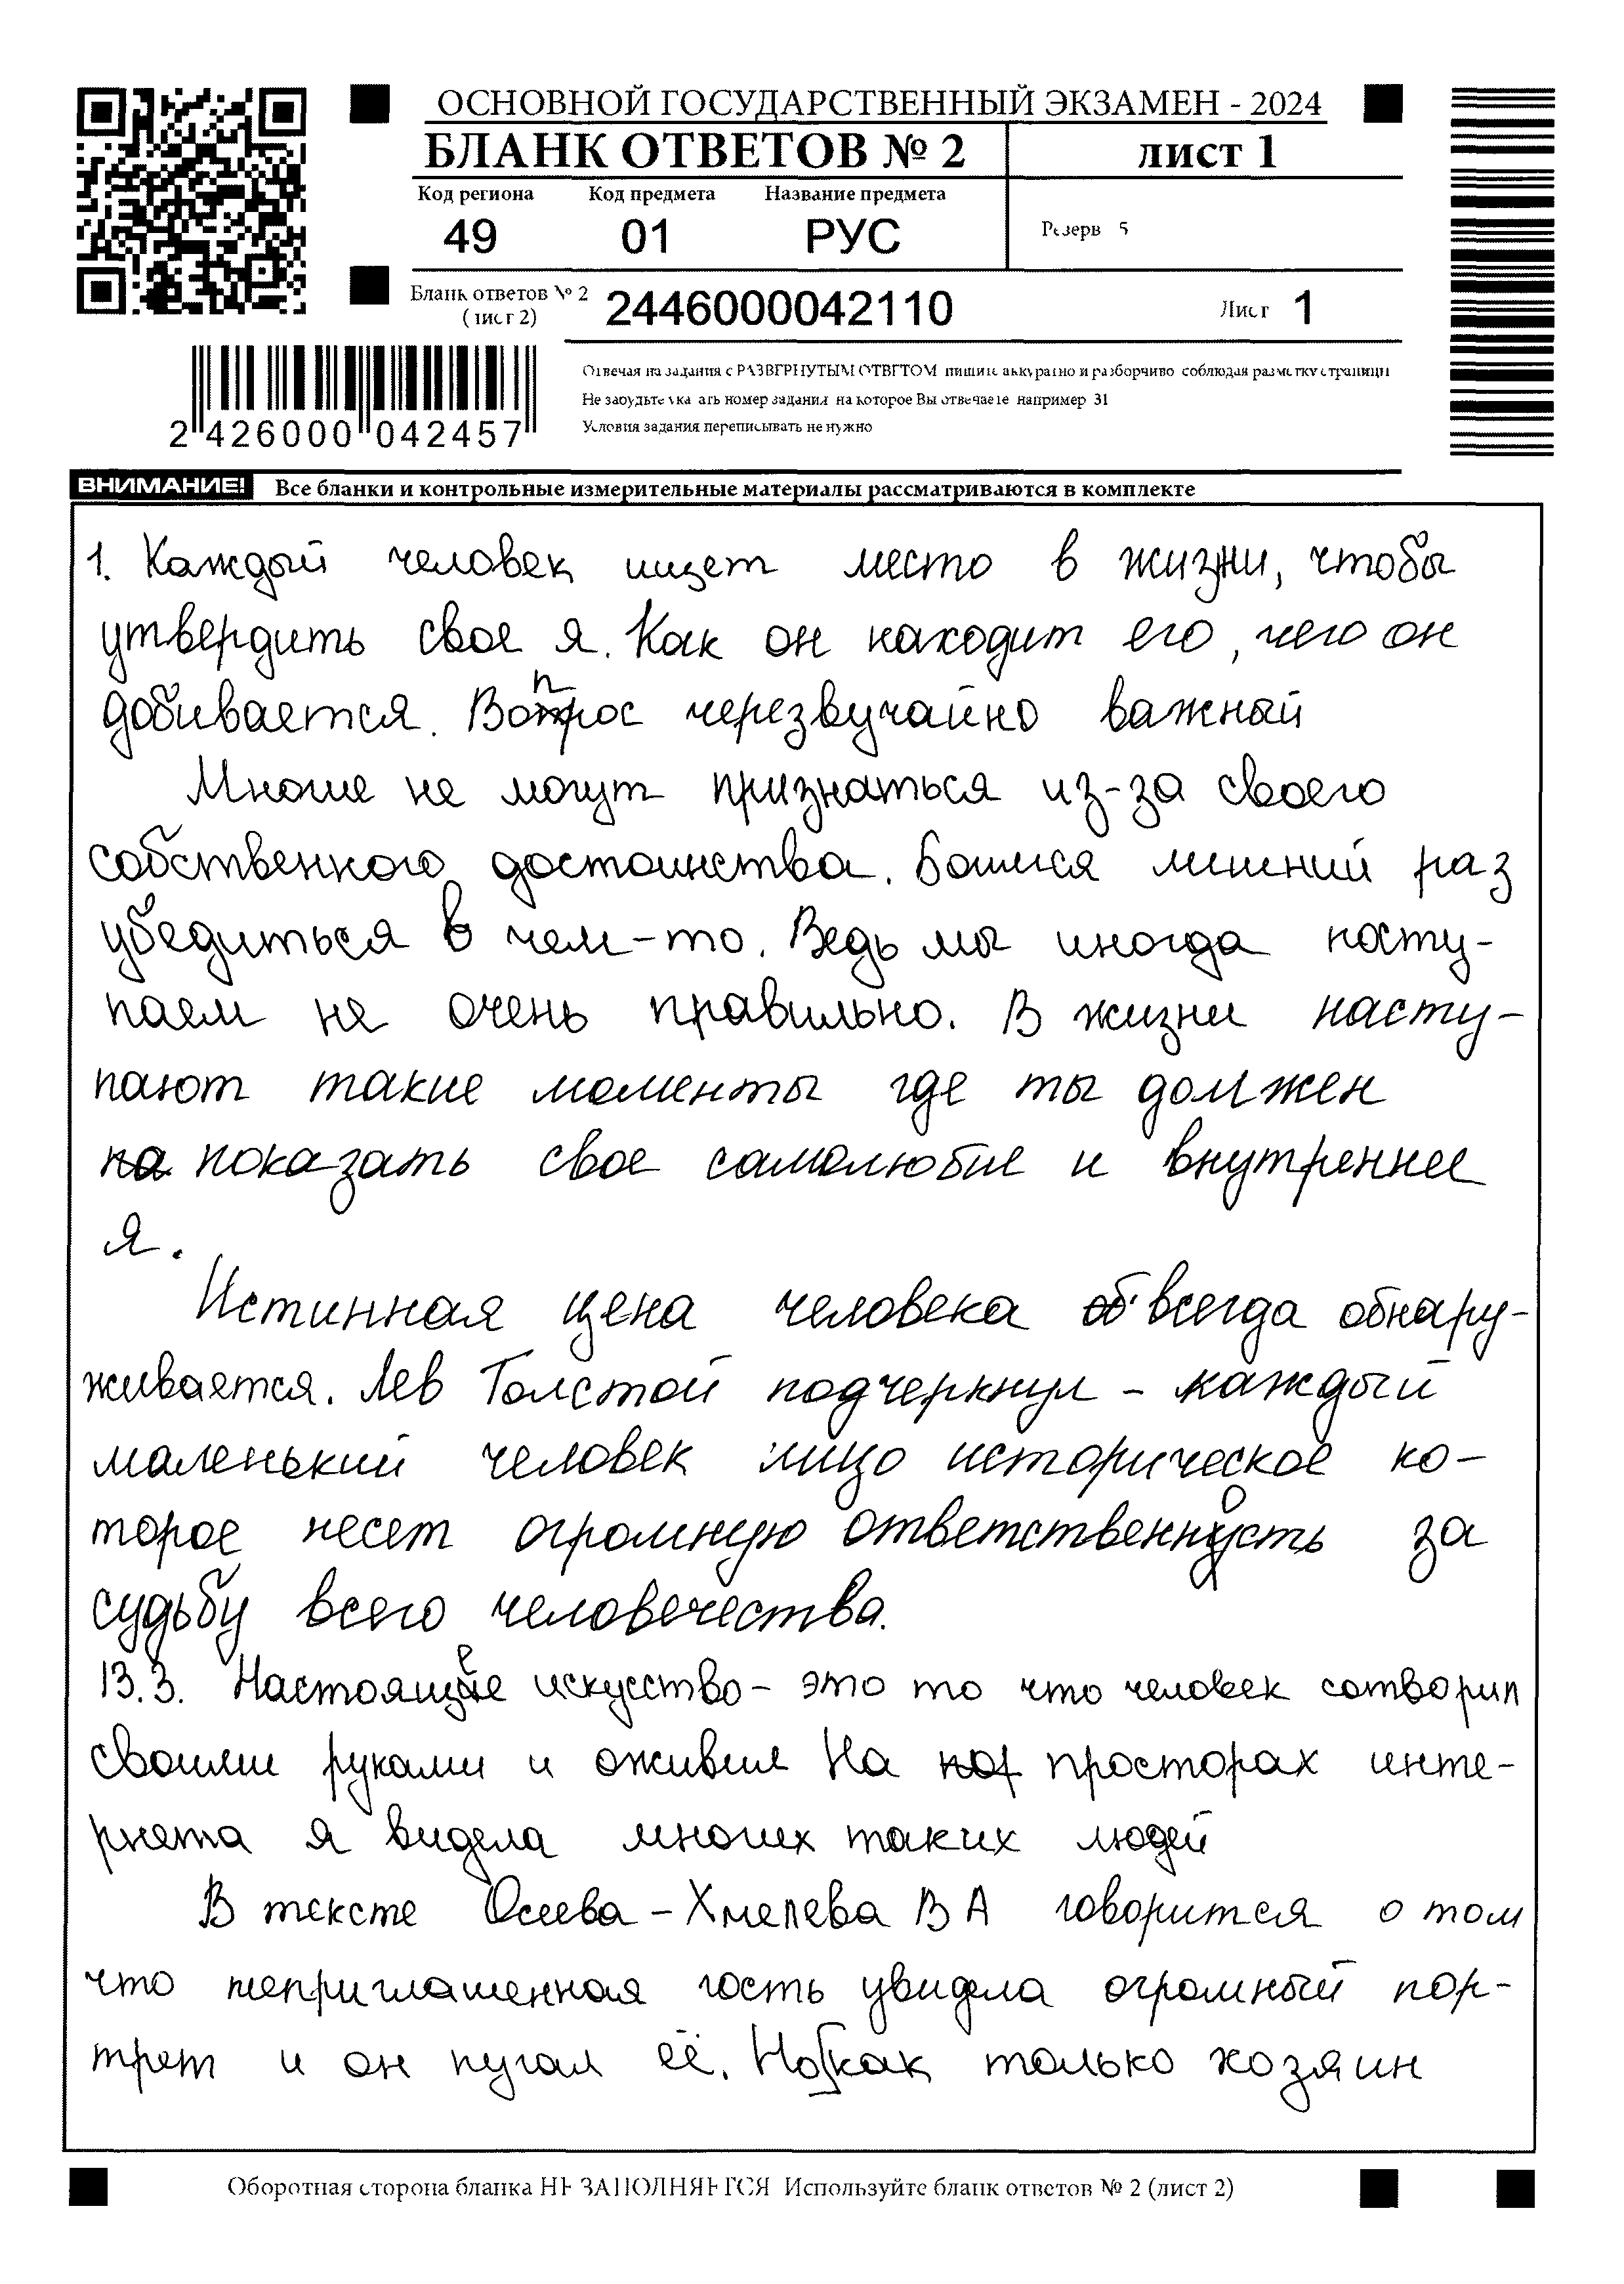 ОСНОВНОЙ ГОСУДАРСТВЕННЫЙ ЭКЗАМЕН - 2024
БЛАНК ОТВЕТОВ № 2 лист 1
Код региона Код предмета Название предмета
49 01 РУС
Резерв 5
Бланк ответов № 2 (лист 2) 2446000042110 Лист 1
Отвечая на задания с РАЗВЕРНУТЫМ ОТВЕТОМ пишите аккуратно и разборчиво соблюдая разметку страницы
Не забудьте указать номер задания на которое Вы отвечаете например 31
Условия задания переписывать не нужно
2 426000 042457
ВНИМАНИЕ! Все бланки и контрольные измерительные материалы рассматриваются в комплекте
1. Каждый человек ищет место в жизни, чтобы
утвердить свое я. Как он находит его, чего он
добивается. Вопрос черезвучайно важный
Многие не могут признаться из-за своего
собственного достоинства. Боимся лишний раз
убедиться в чем-то. Ведь мы иногда посту-
паем не очень правильно. В жизни насту-
пают такие моменты где ты должен
па показать свое самолюбие и внутреннее
я.
Истинная цена человека об всегда обнару-
живается. Лев Толстой подчеркнул - каждый
маленький человек лицо историческое ко-
торое несет огромную ответственность за
судьбу всего человечества.
13.3. Настоящее искусство - это то что человек сотворил
своими руками и оживил На поз просторах инте-
рнета я видела многих таких людей
В тексте Осеева - Хмелева В А говорится о том
что неприглашенная гость увидела огромный пор-
трет и он пугал её. Но как только хозяин
Оборотная сторона бланка НЕ ЗАПОЛНЯЕТСЯ Используйте бланк ответов № 2 (лист 2)